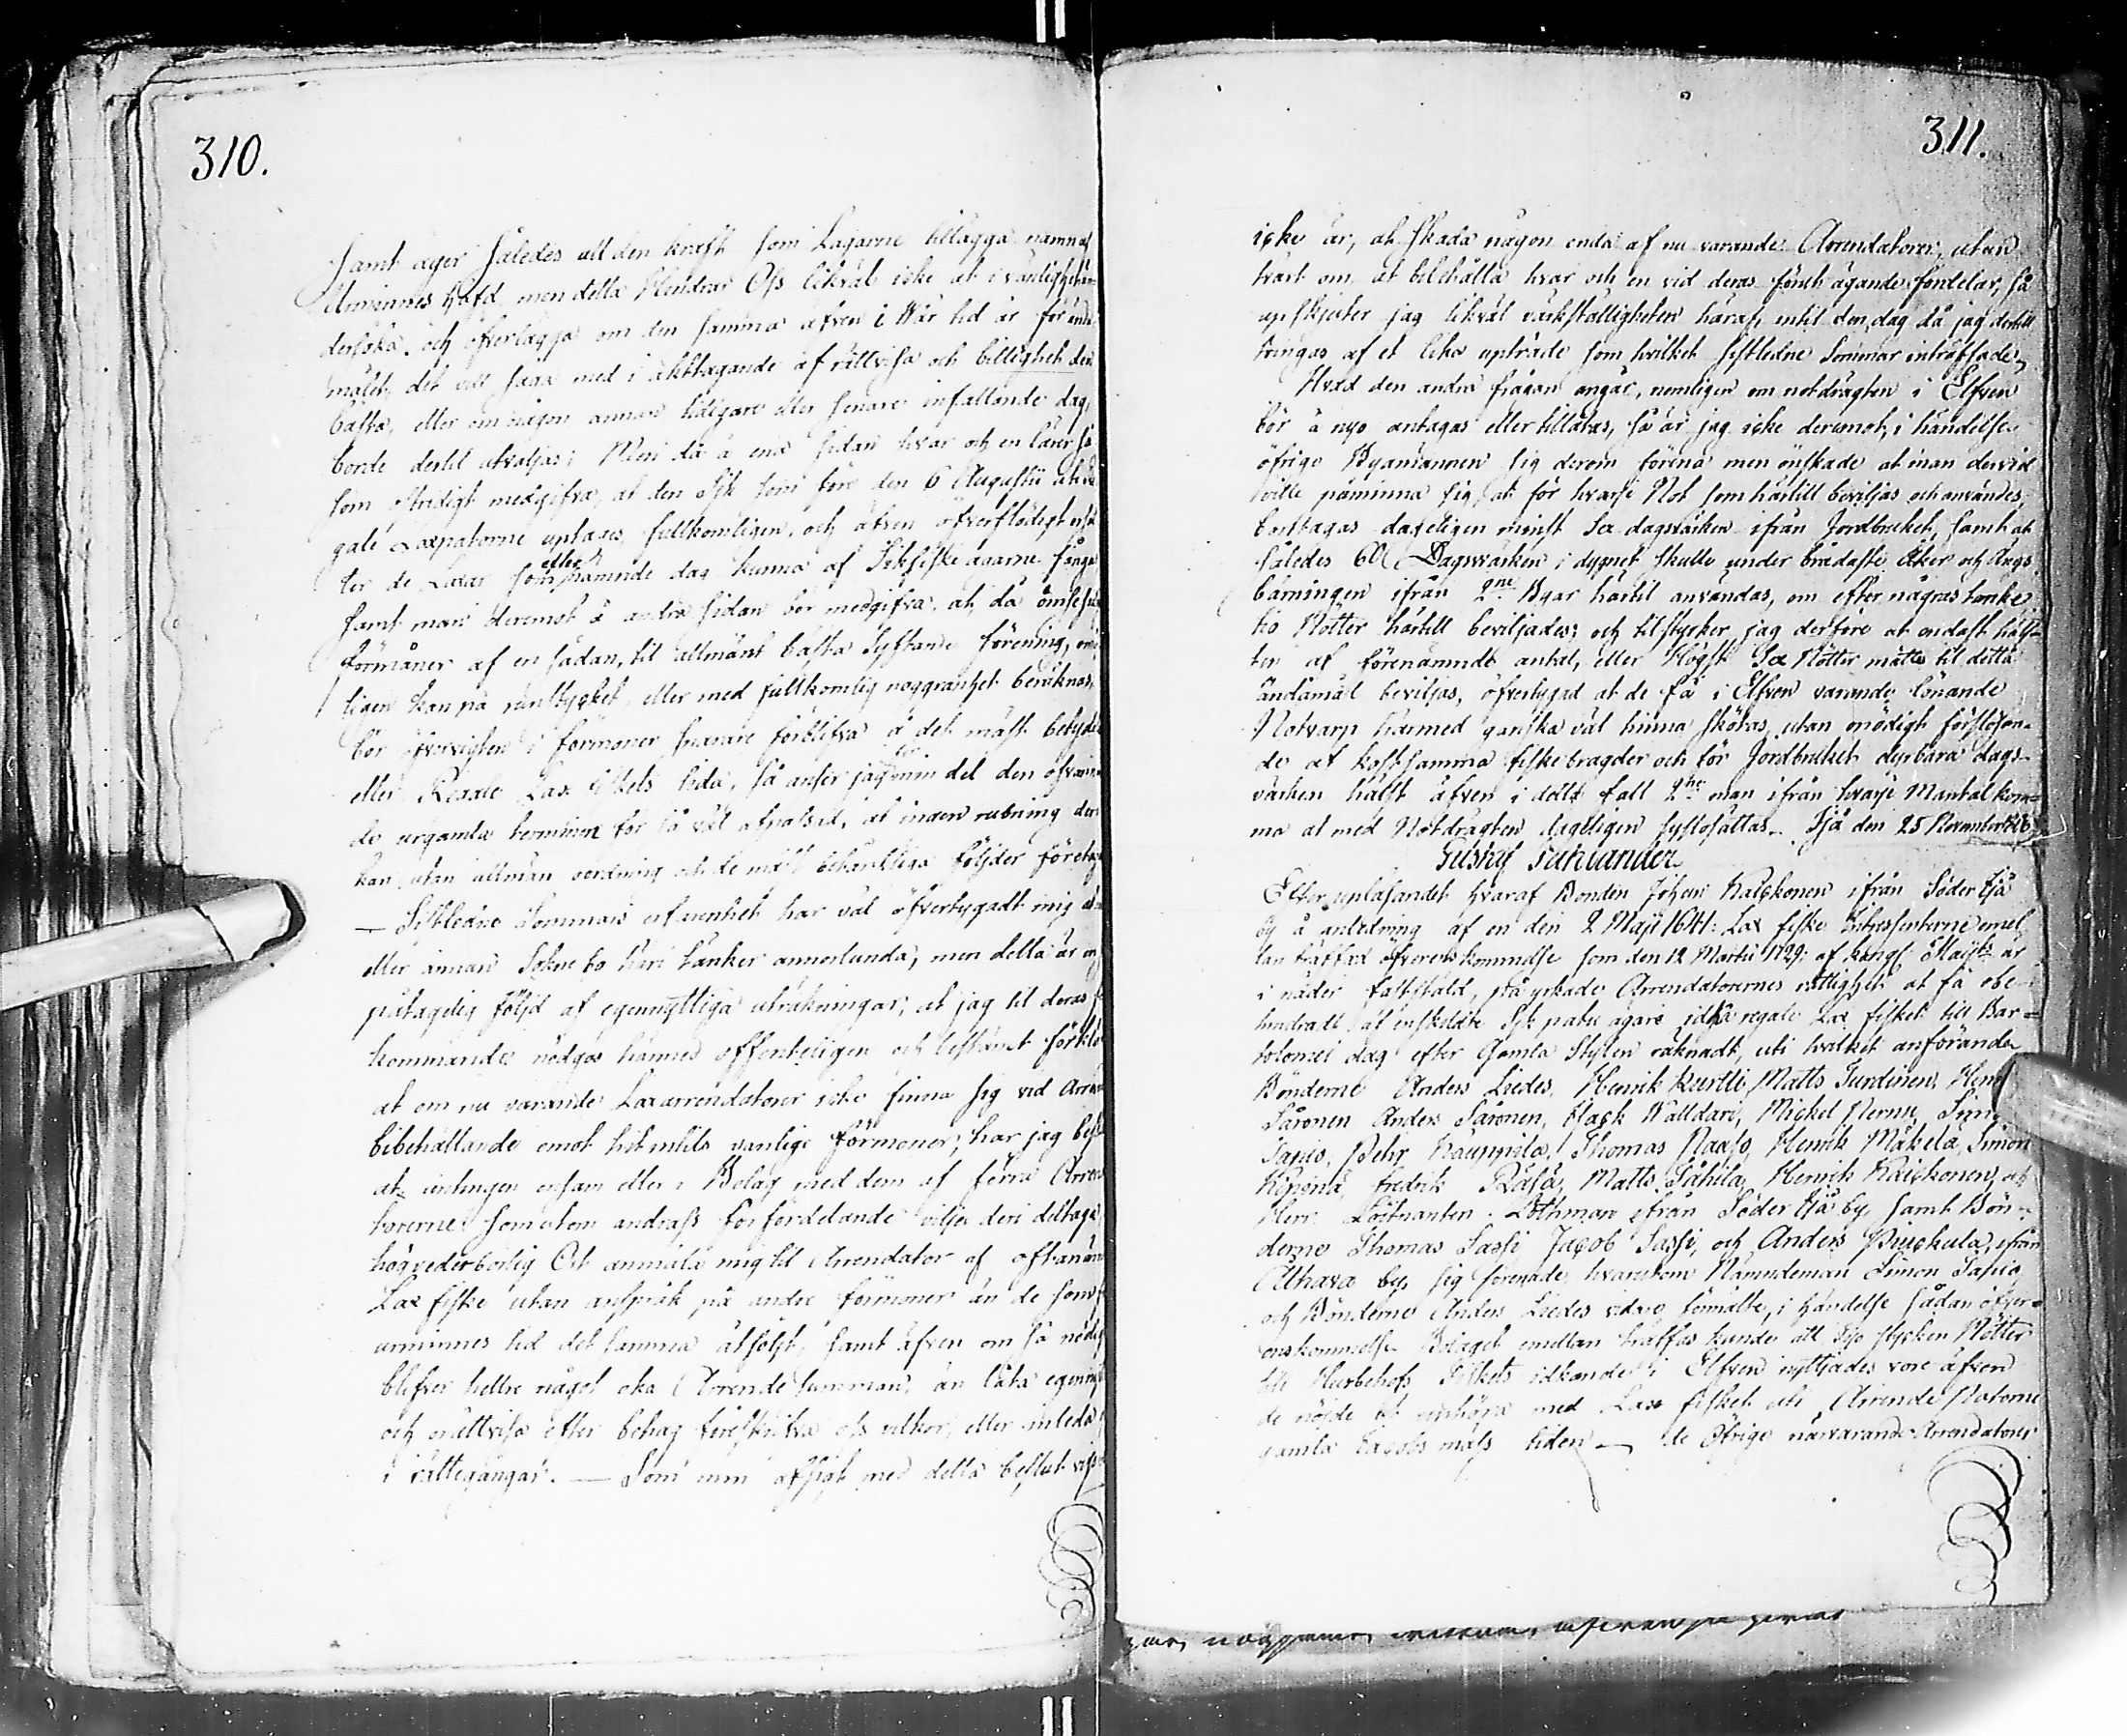 310.
Samt äger således all den kraft som Lagarne tillägga nämnd
Urminnes häfd, men detta Hindrar Oss likväl icke at i vänlighet
dersöka, och öfverlägga om den samma äfven i Wår tid är för ända
målet, det vill säga med i akttagande af rättvisa och billighet den
bästa, eller om någon annan tidigare eller senare infallande dag,
borde dertil utväljas; Men då å ena sidan hvar och en lärer så
som stridigt medgifva, at den Sik som före den 6 Augustii uti de
gale Laxpatorne uptages, fullkomligen, och äfven öfverflödigt
ter de Laxar som efter nämnde dag kunna af Sikfiske ägarne fånga
samt man deremot å andra sidan bör medgifva, at, då ömse
förmåner af en sådan, til allmänt bästa Syftande förening,
ligen kan på runstycket, eller med fullkomlig noggranhet beräknas,
bör öfvervigten i förmoner snarare förblifva å det mäst betyde
eller Regale Lax fiskets sida, så anser jag för min del den ofvan
de urgamla terminen för så väl afpassad, at ingen rubning der
kan, utan allmän oordning och de mäst betänkliga följder företag
— Sistledne Sommars erfarenhet har väl öfvertygadt mig at
eller annan Sökne bo häri tänker annorlunda, men detta är en
påtagelig följd af egennyttiga uträkningar; at jag til deras
kommande nödgas härmed offenteligen och bestämt förklara
at om nu varande Laxarrendatorer icke finna sig vid Arrendets
bibehållande emot hit intils vanlige förmoner; har jag beslutit
at, antingen ensam eller i Bolag med dem af förra Arrenda
torerne, som utom andras förfördelande vilja deri deltaga
högvederborlig Ort anmäla mig til Arrendator af oftanämnde
Lax fiske utan anspråk på andre förmoner än de som
urminnes tid det samma åtföljt, samt äfven om så nödig
blifver hellre något öka Arrende summan, än låta egennytta
och orättvisa efter behag föreskrifva oss vilkor, eller inleda
i rättegångar. — Som min afsigt med detta beslut visst
311.
icke är, at skada någon enda af nu varande Arrendatorer, utan
tvärt om, at bibehålla hvar och en vid deras förut ägande fördelar, så
upskjuter jag likväl värkställigheten häraf, intil den dag då jag dertill
tvingas af et lika upträde som hvilket sistledne Sommar inträffade,
Hvad den andra frågan angår, nemligen om notdrägten i Elfven
bör å nyo antagas eller tillåtas, så är jag icke deremot, i händelse
öfrige Byamännen sig derom förena men önskade at man dervid
ville påminna sig, at för hvarje Not som härtill beviljas och användes,
borttagas dageligen minst Sex dagsvärken ifrån Jordbruket, samt at
således 60 Dagsvärken i dygnet skulle under brådaste Åker och Ängs
bärningen ifrån 2ne Byar härtil användas, om efter någras tanke
tio Nötter härtill beviljades; och tilstyrker jag derföre at endast hälf-
ten af förenämnde antal, eller Högst Sex Nötter måtte til detta
ändamål beviljas, öfvertygad at de få i Elfven varande lönande
Notvarp härmed ganska väl hinna skötas, utan onödigt förslösan-
de af kostsamma fiskebragder och för Jordbruket dyrbara dags-
värken hälst äfven i detta fall 2ne man ifrån hvarje Mantal kom-
ma at med Notdrägten dageligen syslosättas. Ijå den 25 November
Gustaf Fahlander
Efter upläsandet hvaraf Bonden Johan Kaickonen ifrån Söder Ijå
by å anledning af en den 2 Maji 1641: Lax fiske Intressenterne emel-
lan träffad öfverenskommelse som den 12 Martii 1729: af Kongl. Maijts är
i nåder fastställd, påyrkade Arrendatorernes rättighet at få obe-
hindradt at enskildte Sik patu ägare idka regale Lax fisket till Bar-
tolomei dag efter Gamla Stylen räknadt, uti hvilket anförande
Bönderne Anders Liedes, Henrik Kurtti, Matts Turdinen,
Päronen Anders Säronen, Klack Walldari, Mickel Pernu,
Tapio, Pehr Kauppila, Thomas Paaso, Henrik Mäkelä, Simon
Fredrik Räisä, Matts Påhila, Henrik Kaickonen, och
Herr Löjtnanten Lothman ifrån Söder Ijå by, samt Bön-
derne Thomas Sassi Jacob Sassi, och Anders Puickula, ifrån
Althava by, sig förenade, hvarutom Nämndeman Simon Tapio
och Bönderne Anders Liedes vidare förmälte, i händelse sådan öfver-
enskommelse Bolaget emellan träffas kunde att Tijo stycken Nötter
till Husbehofs Fiskets idkande i Elfven nyttjades vore äfven
de nöjde at uphöra med Lax fisket uti Arrende Patorne
gamla Jacobs mäss tiden — de Öfrige närvarande Arrendatorer